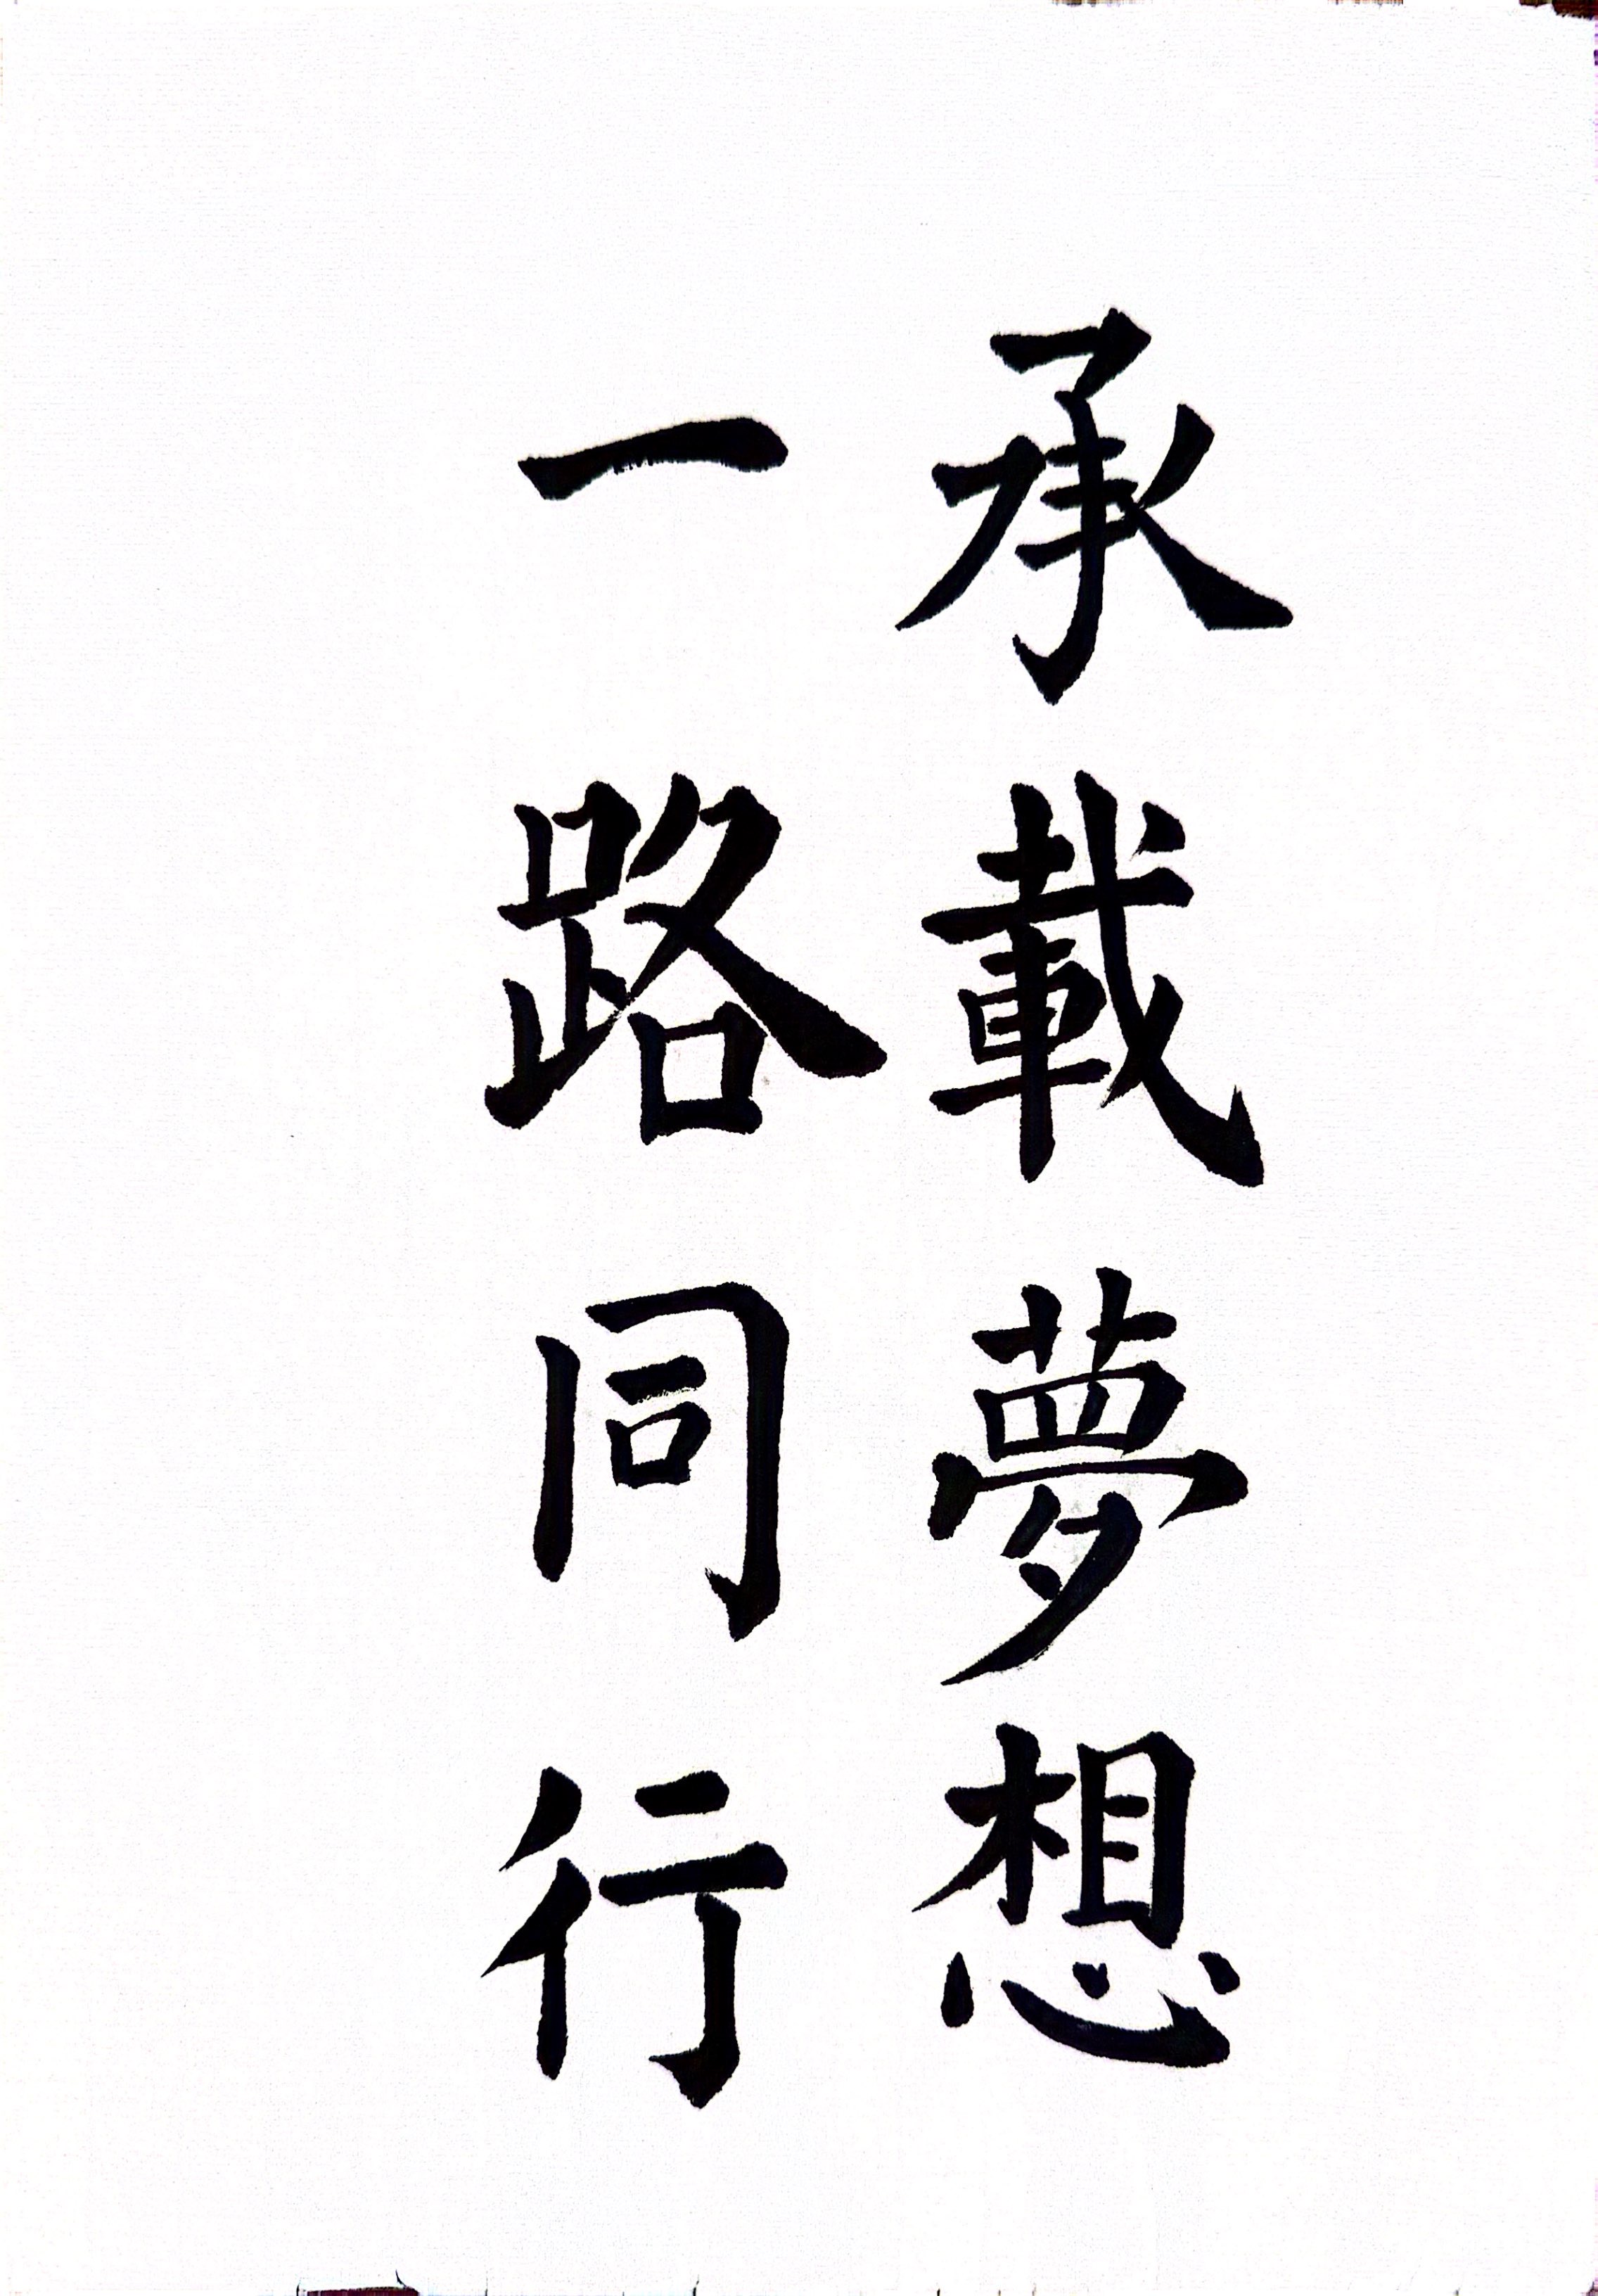 承載夢想
一路同行